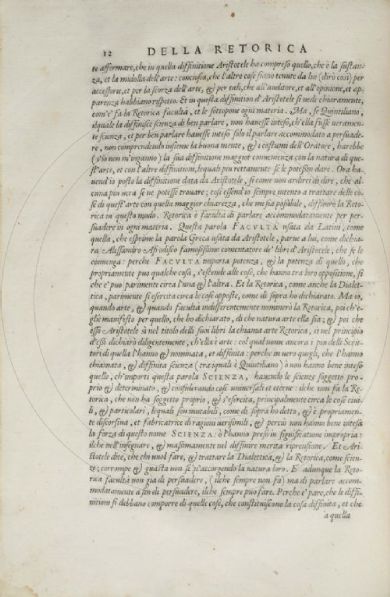 12 DELLA RETORICA
te affermare, che in quella diffinitione Aristotele ho compreso quello, che è la sustan
za, et la midolla dell'arte: conciosia, che l'altre cose sieno tenute da lui (dirò così) per
accessorie, et per la scorza dell'arte, & per tali, che all'auditore, et all'opinione, et ap
parenza habbiano rispetto. Et in questa diffinition d'Aristotele si vede chiaramente,
com'è fa la Retorica facultà, et le sottopone ogni materia. Ma, se Quintiliano,
ilquale la diffinisce scienza di ben parlare, non hauesse inteso, ch'ella fosse veramen-
te scienza, et per ben parlare hauesse inteso solo il parlare accommodato a persuade
re, non comprendendo insieme la buona mente, & i costumi dell'Oratore, harebbe
(s'io non m'inganno) la sua diffinitione maggior conuenienza con la natura di que
st'arte, et con l'altre diffinitioni, lequali piu rettamente se le possono dare. Ora ha
uend'io posto la diffinitione data da Aristotele, sì come non ardirei di dire, che al
cuna piu uera se ne potesse trouare; così essendo io sempre intento a trattare delle co
se di quest'arte con quella maggior chiarezza, che mi sia possibile, diffinirò la Reto
rica in questo modo. Retorica è facultà di parlare accommodatamente per per
suadere in ogni materia. Questa parola FACULTÀ usata da Latini, come
quella, che esprime la parola Greca usata da Aristotele, parue a lui, come dichia
ra Alessandro Afrodiseo famosissimo comentatore de' libri d'Aristotele, che se le
conuenga: perche FACULTÀ importa potenza, & la potenza di quello, che
propriamente può qualche cosa, s'estende alle cose, che hanno tra loro oppositione, sì
che e' può parimente circa l'una & l'altra. Et la Retorica, come anche la Dialet
tica, parimente si esercita circa le cose opposte, come di sopra ho dichiarato. Ma io,
quando arte, & quando facultà indifferentemente nominerò la Retorica, poich'è
egli manifesto per quello, che ho dichiarato, di che natura arte ella sia; & poi che
esso Aristotele sì nel titolo delli suoi libri la chiama arte Retorica, sì nel principio
d'essi dichiarò diligentemente, ch'ella è arte: col qual nome ancora i piu delli Scrit
tori di quella l'hanno & nominata, et diffinita: perche in uero quegli, che l'hanno
chiamata, & diffinita scienza (tra quali è Quintiliano) ò non hanno bene inteso
quello, ch'importi questa parola SCIENZA, hauendo le scienze soggetto pro-
prio & determinato, & considerando cose uniuersali et eterne: ilche non fa la Re
torica, che non ha soggetto proprio, & s'esercita, principalmente circa le cose ciui
li, & particolari, lequali son mutabili, come di sopra ho detto, & è propriamen-
te discorsiua, et fabricatrice di ragioni uerisimili, et perciò non hanno bene inteso
la forza di questo nome SCIENZA: ò l'hanno preso in significatione impropria:
ilche nell'insegnare, & massimamente nel diffinire merita riprensione. Et Aristo
tele dice, che chi uuol fare, & trattare la Dialettica, & la Retorica, come scien-
ze, corrompe & guasta non se n'accorgendo la natura loro. E adunque la Reto
rica facultà non già di persuadere, (ilche sempre non fa) ma di parlare accom-
modatamente a fin di persuadere, ilche sempre può fare. Perche e' pare, che le diffi-
nitioni si debbano comporre di quelle cose, che constituiscono la cosa diffinita, et che
a quella